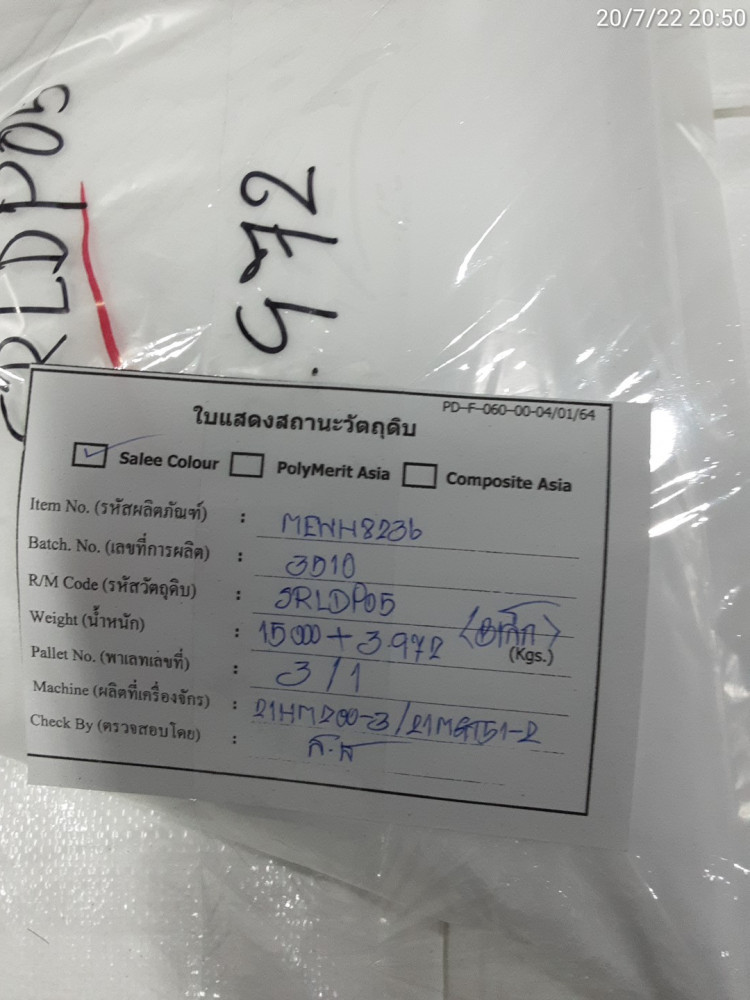 20/7/22 20:50
SRLDP05
.972
PD-F-060-00-04/01/64
ใบแสดงสถานะวัตถุดิบ
Salee Colour PolyMerit Asia Composite Asia
Item No. (รหัสผลิตภัณฑ์) : MEWH8236
Batch. No. (เลขที่การผลิต) : 3D10
R/M Code (รหัสวัตถุดิบ) : SRLDP05
Weight (น้ำหนัก) : 15.000 + 3.972 (Kgs.)
Pallet No. (พาเลทเลขที่) : 3/1
Machine (ผลิตที่เครื่องจักร) : 21HM200-3/21MGT51-2
Check By (ตรวจสอบโดย) :